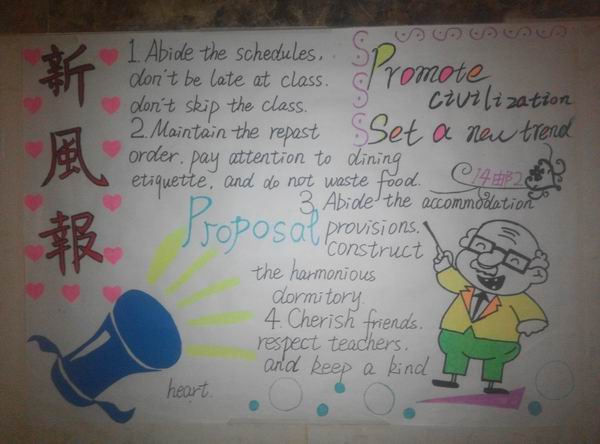 新
風
報
1. Abide the schedules,
don't be late at class.
don't skip the class.
2. Maintain the repast
order, pay attention to dining
etiquette, and do not waste food.
3 Abide the accommodation
provisions,
construct
the harmonious
dormitory.
4. Cherish friends,
respect teachers,
and keep a kind
heart.
Proposal
Promote
civilization
Set a new trend
14邮2